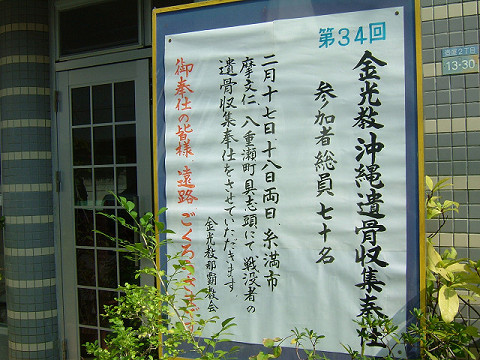 第34回
金光教 沖縄遺骨収集奉仕
参加者総員 七十名
二月十七日、十八日両日 糸満市
摩文仁、八重瀬町具志頭にて戦没者の
遺骨収集奉仕をさせていただきます。
金光教那覇教会
御奉仕の皆様 遠路 ごくろうさまです
13-30